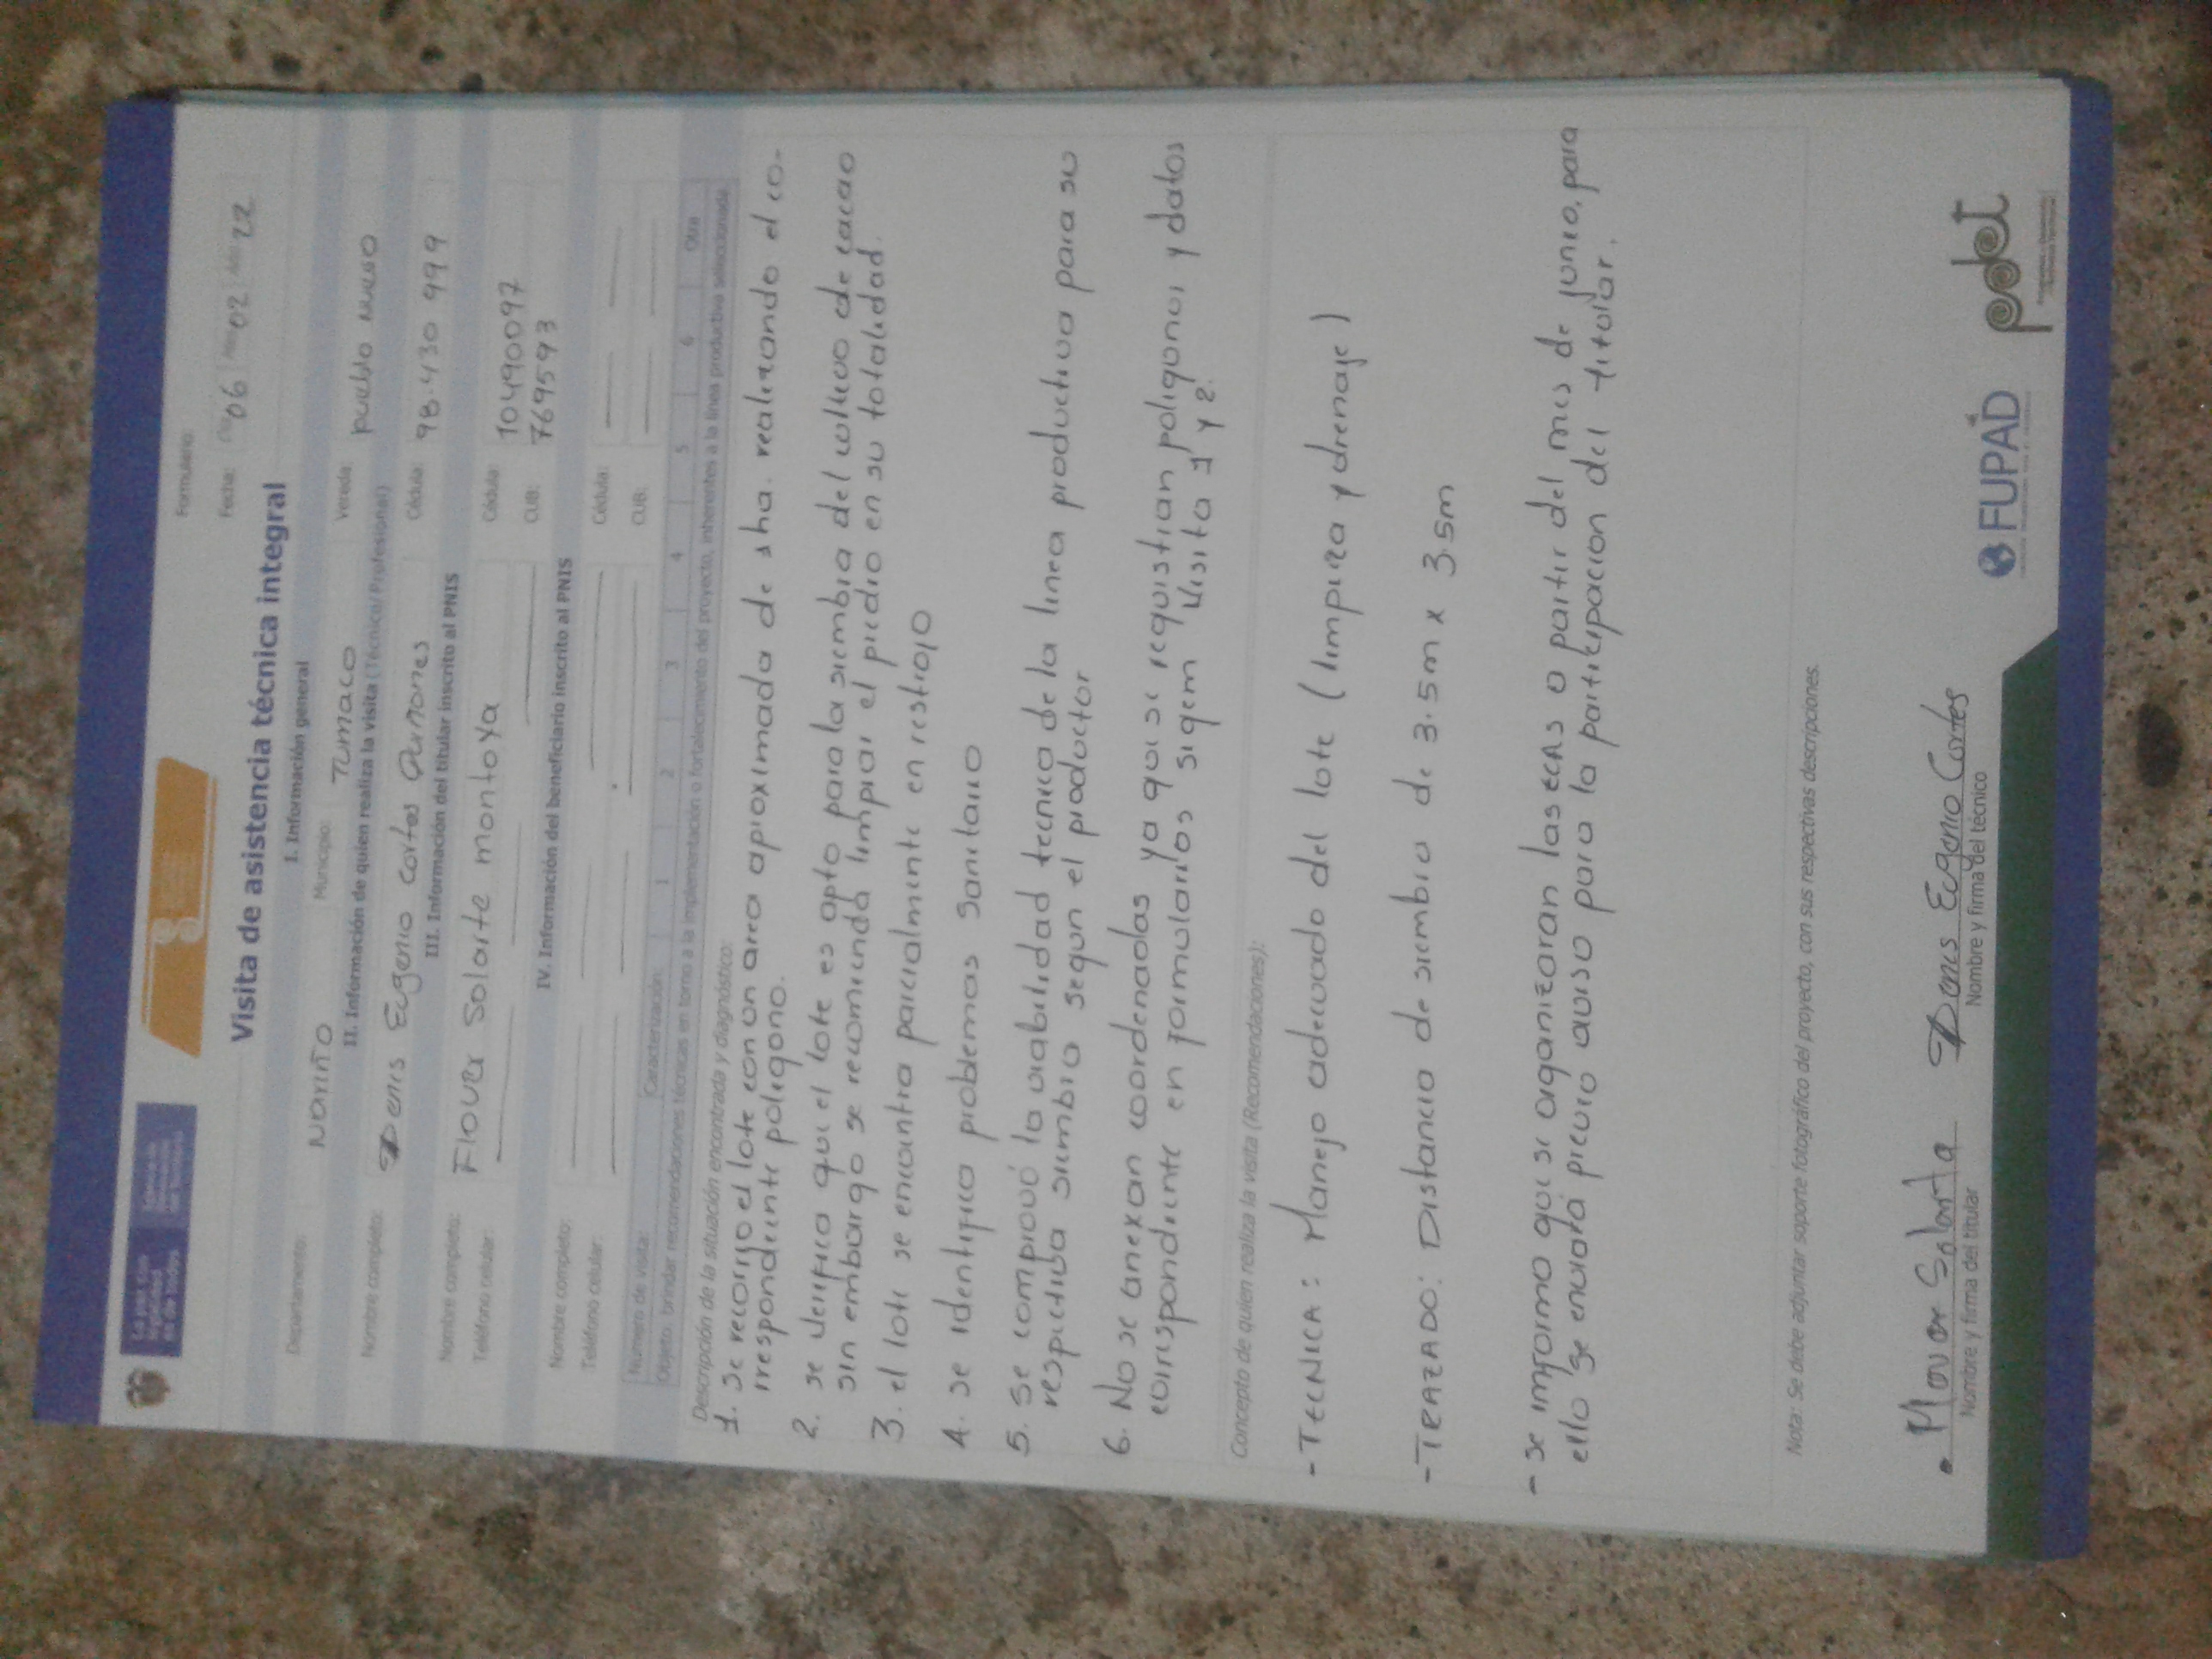 Formulario:
Visita de asistencia técnica integral
Fecha: 06 02 22
I. Información general
Departamento: NARIÑO Municipio: TUMACO Vereda: pueblo nuevo
II. Información de quien realiza la visita (Técnico/Profesional)
Nombre completo: Denis Eugenio cortes Quiñones Cédula: 98.430 999
III. Información del titular inscrito al PNIS
Nombre completo: Flover Solarte montoya Cédula: 104990097
Teléfono celular: CUB: 7695593
IV. Información del beneficiario inscrito al PNIS
Nombre completo: Cédula:
Teléfono celular: CUB:
Número de visita: Caracterización: 1 2 3 4 5 6 Otra
Objeto: brindar recomendaciones técnicas en torno a la implementación o fortalecimiento del proyecto, inherentes a la línea productiva seleccionada
Descripción de la situación encontrada y diagnóstico:
1. se recorrjo el lote con un area aproximada de ha. realizando el co-
rrespondiente poligono.
2. se verifica que el lote es apto para la siembra del cultivo de cacao
sin embargo se recomienda limpiar el predio en su totalidad.
3. el lote se encuntra parcialmente en restrojo
4. se identifico problemas sanitario
5. se comprovó la viabilidad tecnica de la linea productiva para su
respectiva siembra segun el productor
6. No se anexan coordenadas ya que se requistian poligonos y datos
correspondiente en formularios sigem visita 1 y 2.
Concepto de quien realiza la visita (Recomendaciones):
- TECNICA: Manejo adecuado del lote (limpieza y drenaje)
- TRAZADO: Distancia de siembra de 3.5m x 3.5m
- se informo que se organizaran las ECAS a partir del mes de junio, para
ello se enviará previo aviso para la participacion del titular.
Nota: Se debe adjuntar soporte fotográfico del proyecto, con sus respectivas descripciones.
Solarta Denis Eugenio Cortes
Nombre y firma del titular Nombre y firma del técnico
FUPAD pdet